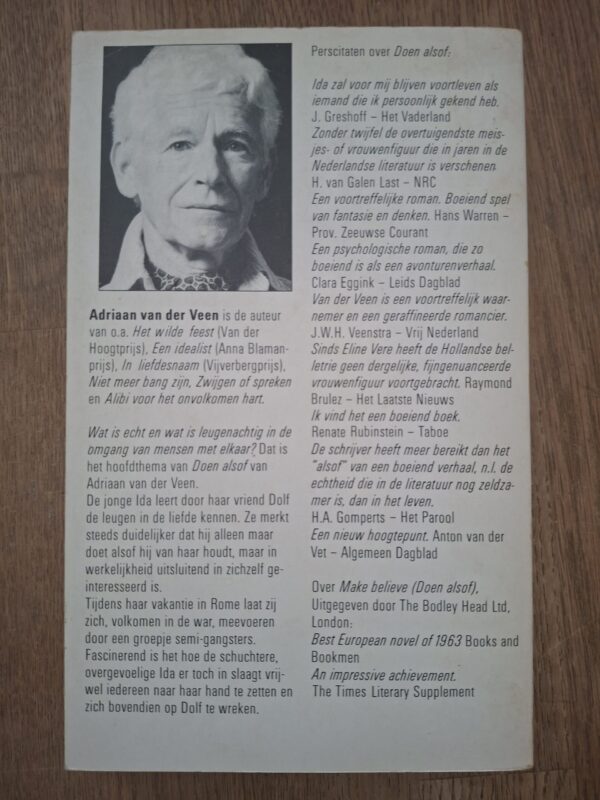 Adriaan van der Veen is de auteur
van o.a. Het wilde feest (Van der
Hoogtprijs), Een idealist (Anna Blaman-
prijs), In liefdesnaam (Vijverbergprijs),
Niet meer bang zijn, Zwijgen of spreken
en Alibi voor het onvolkomen hart.
Wat is echt en wat is leugenachtig in de
omgang van mensen met elkaar? Dat is
het hoofdthema van Doen alsof van
Adriaan van der Veen.
De jonge Ida leert door haar vriend Dolf
de leugen in de liefde kennen. Ze merkt
steeds duidelijker dat hij alleen maar
doet alsof hij van haar houdt, maar in
werkelijkheid uitsluitend in zichzelf ge-
interesseerd is.
Tijdens haar vakantie in Rome laat zij
zich, volkomen in de war, meevoeren
door een groepje semi-gangsters.
Fascinerend is het hoe de schuchtere,
overgevoelige Ida er toch in slaagt vrij-
wel iedereen naar haar hand te zetten en
zich bovendien op Dolf te wreken.
Perscitaten over Doen alsof:
Ida zal voor mij blijven voortleven als
iemand die ik persoonlijk gekend heb.
J. Greshoff – Het Vaderland
Zonder twijfel de overtuigendste meis-
jes- of vrouwenfiguur die in jaren in de
Nederlandse literatuur is verschenen.
H. van Galen Last – NRC
Een voortreffelijke roman. Boeiend spel
van fantasie en denken. Hans Warren –
Prov. Zeeuwse Courant
Een psychologische roman, die zo
boeiend is als een avonturenverhaal.
Clara Eggink – Leids Dagblad
Van der Veen is een voortreffelijk waar-
nemer en een geraffineerde romancier.
J.W.H. Veenstra – Vrij Nederland
Sinds Eline Vere heeft de Hollandse bel-
letrie geen dergelijke, fijngenuanceerde
vrouwenfiguur voortgebracht. Raymond
Brulez – Het Laatste Nieuws
Ik vind het een boeiend boek.
Renate Rubinstein – Taboe
De schrijver heeft meer bereikt dan het
"alsof" van een boeiend verhaal, n.l. de
echtheid die in de literatuur nog zeldza-
mer is, dan in het leven.
H.A. Gomperts – Het Parool
Een nieuw hoogtepunt. Anton van der
Vet – Algemeen Dagblad
Over Make believe (Doen alsof),
Uitgegeven door The Bodley Head Ltd,
London:
Best European novel of 1963 Books and
Bookmen
An impressive achievement.
The Times Literary Supplement